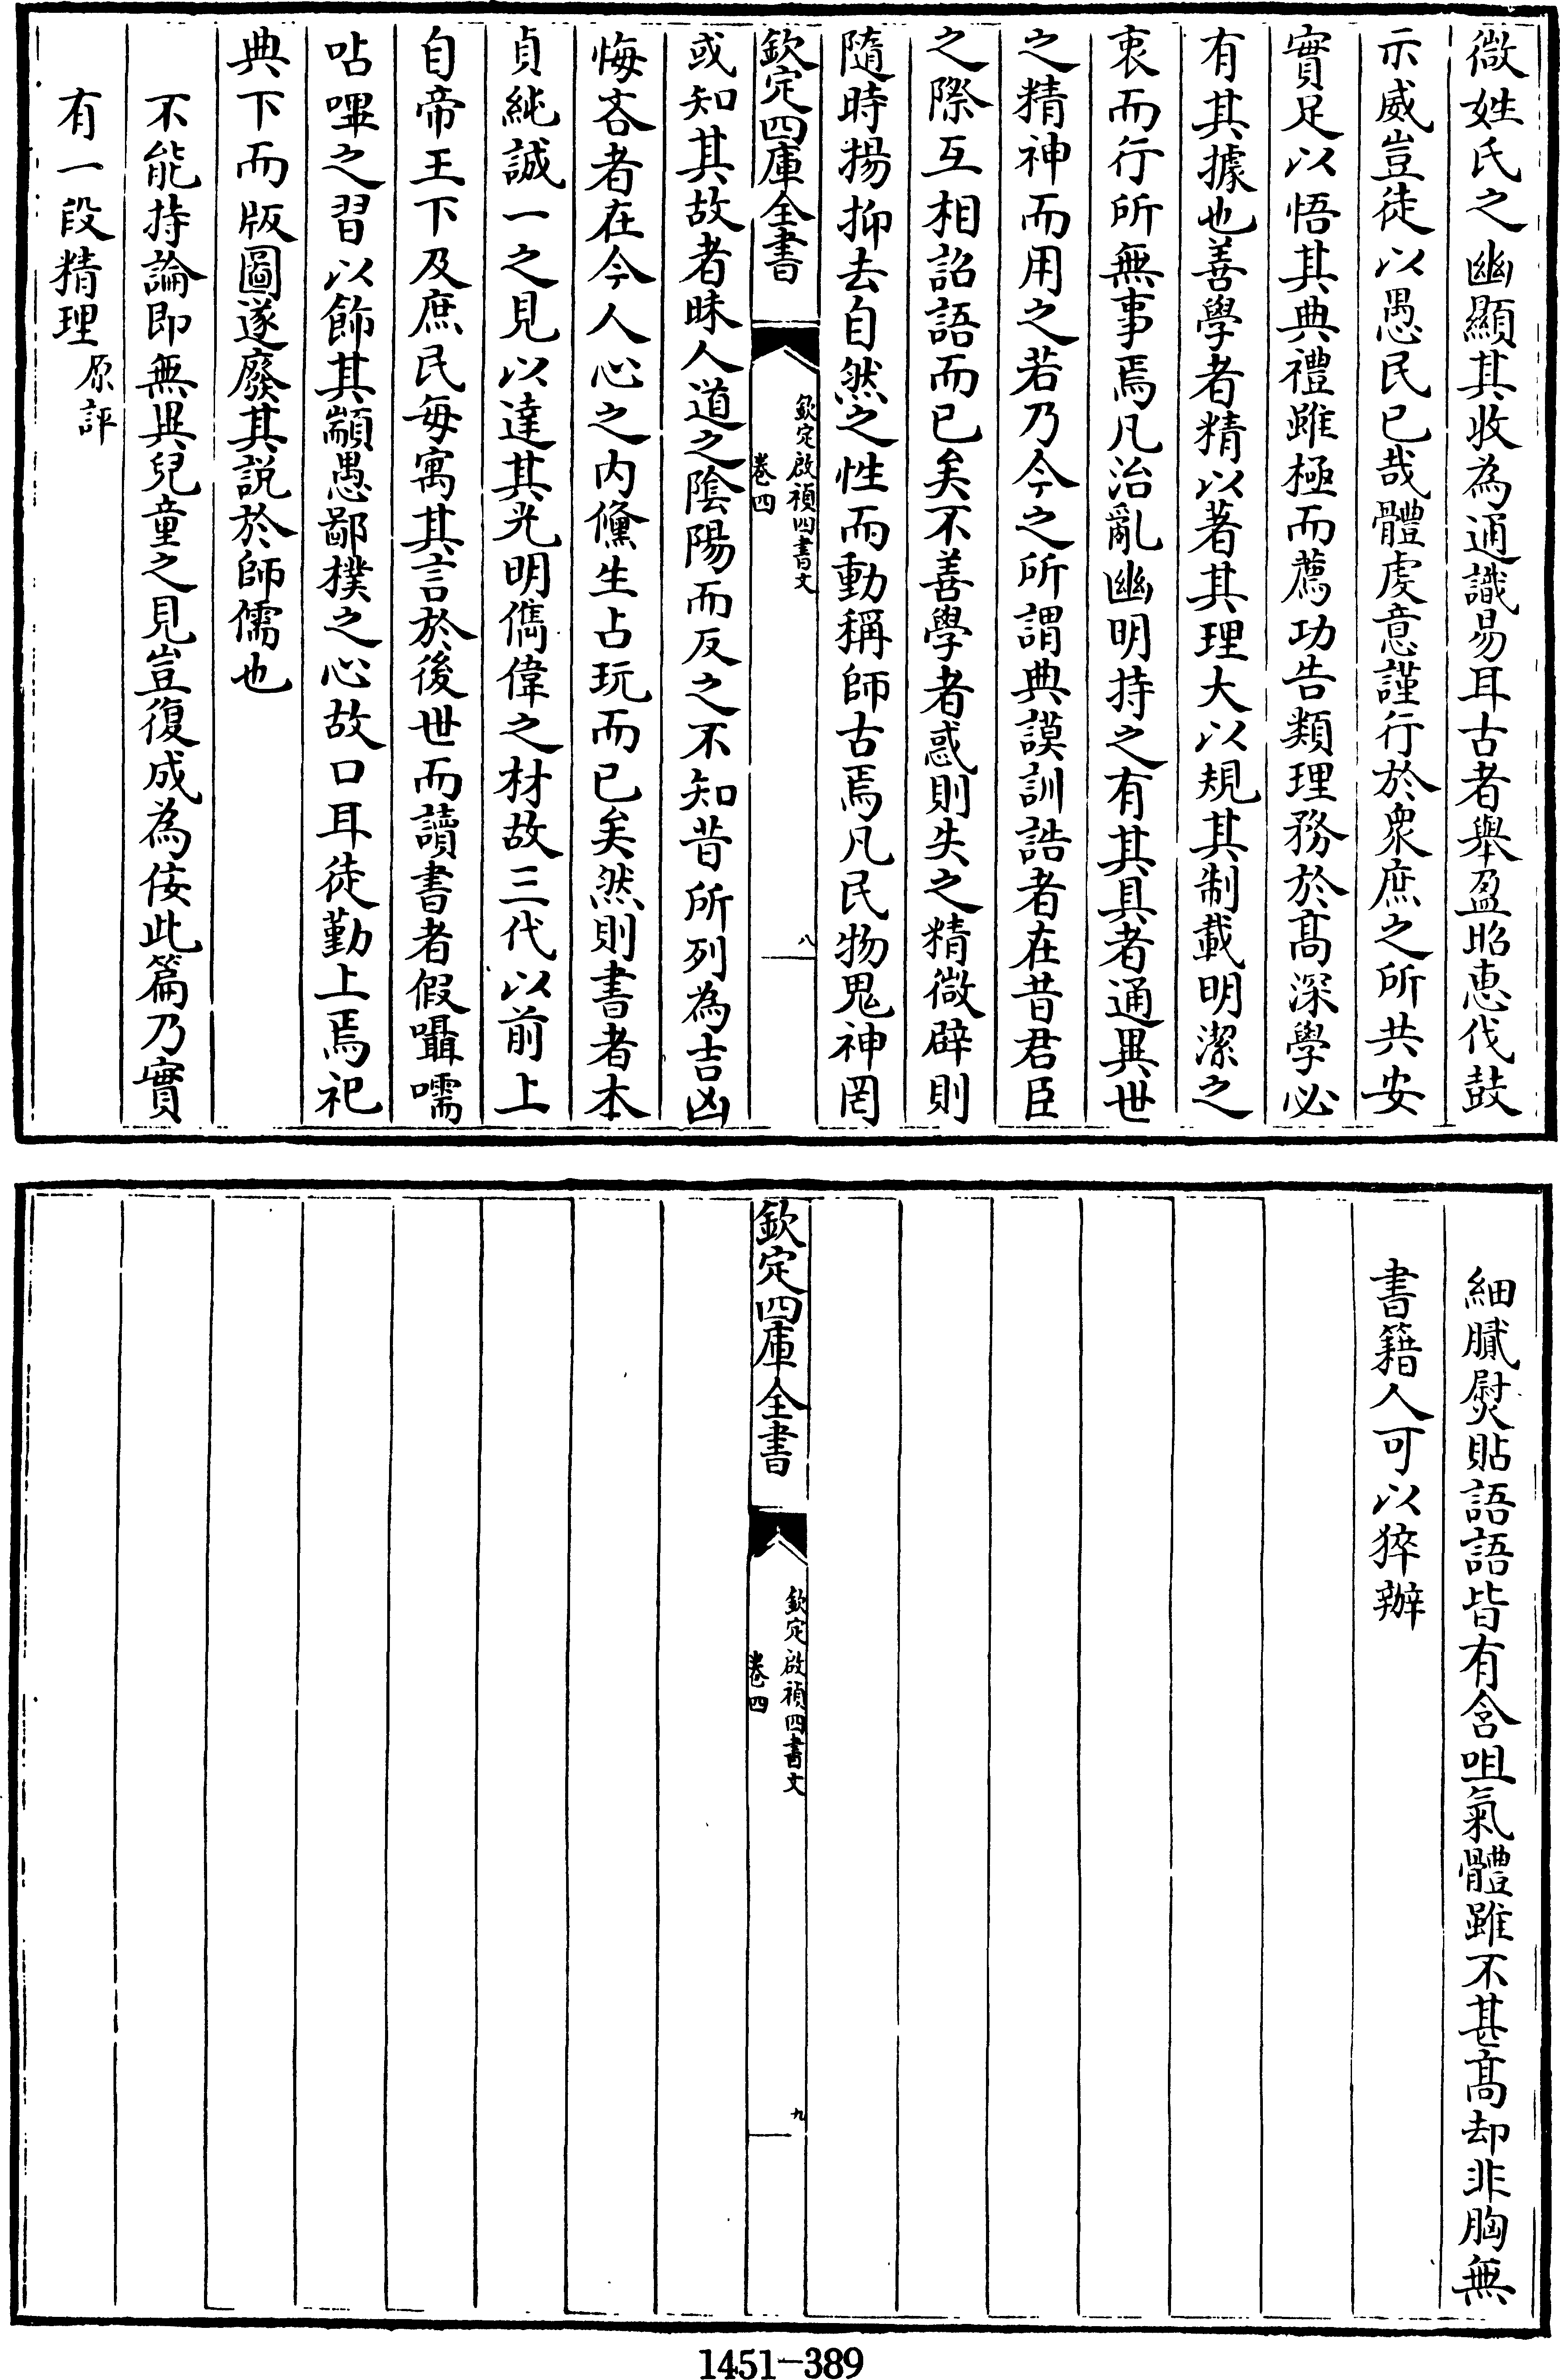 微姓氏之幽顯其收為通識易耳古者舉盈昭惠伐鼓
示威豈徒以愚民已哉體䖍意謹行於衆庶之所共安
實足以悟其典禮雖極而薦功告類理務於髙深學必
有其據也善學者精以著其理大以規其制載明潔之
衷而行所無事焉凡治亂幽明持之有其具者通異世
之精神而用之若乃今之所謂典謨訓誥者在昔君臣
之際互相詔語而已矣不善學者惑則失之精微辟則
隨時揚抑去自然之性而動稱師古焉凡民物鬼神罔
欽定四庫全書
欽定啟禎四書文
卷四
八
或知其故者昧人道之陰陽而反之不知昔所列為吉凶
悔吝者在今人心之内儻生占玩而已矣然則書者本
貞純誠一之見以達其光明儁偉之材故三代以前上
自帝王下及庶民每寓其言於後世而讀書者假囁嚅
呫嗶之習以飾其顓愚鄙樸之心故口耳徒勤上焉祀
典下而版圖遂廢其説於師儒也
不能持論即無異兒童之見豈復成為佞此篇乃實
有一段精理原評
細膩熨貼語語皆有含咀氣體雖不甚髙却非胸無
書籍人可以猝辦
欽定四庫全書
欽定啟禎四書文
卷四
九
1451-389